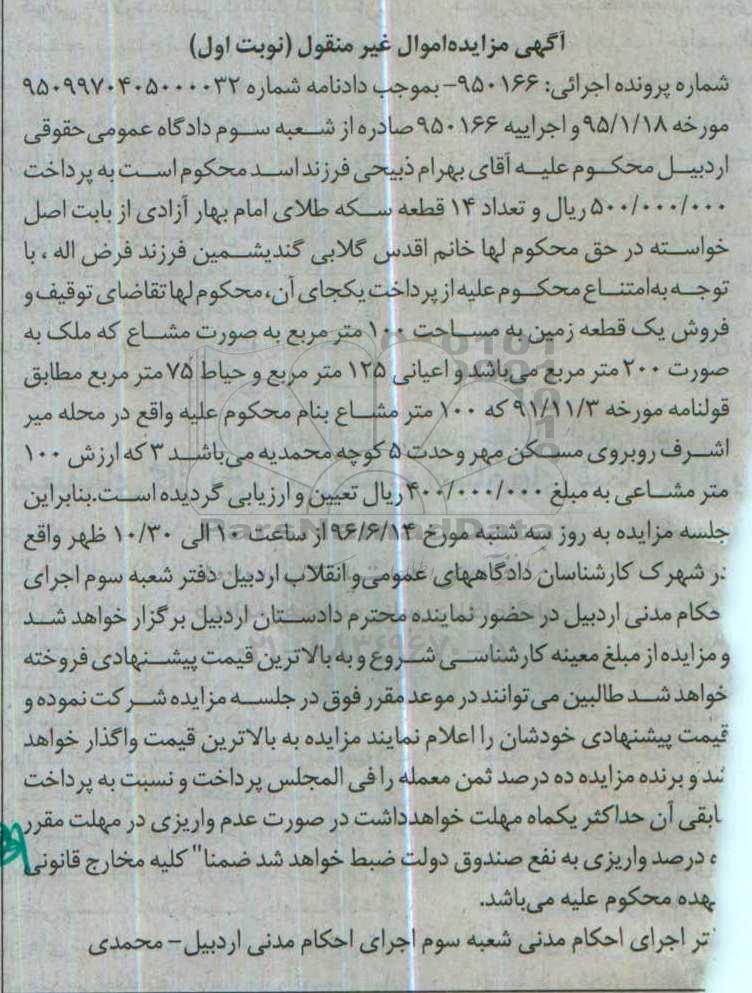 آگهی مزایده‌اموال غیر منقول (نوبت اول)
شماره پرونده اجرائی: ۹۵۰۱۶۶- بموجب دادنامه شماره ۹۵۰۹۹۷۰۴۰۵۰۰۰۰۳۲
مورخه ۹۵/۱/۱۸ و اجراییه ۹۵۰۱۶۶ صادره از شعبه سوم دادگاه عمومی حقوقی
اردبیل محکوم علیه آقای بهرام ذبیحی فرزند اسد محکوم است به پرداخت
۵۰۰/۰۰۰/۰۰۰ ریال و تعداد ۱۴ قطعه سکه طلای امام بهار آزادی از بابت اصل
خواسته در حق محکوم لها خانم اقدس گلابی گندیشمین فرزند فرض اله ، با
توجه به‌امتناع محکوم علیه از پرداخت یکجای آن، محکوم لها تقاضای توقیف و
فروش یک قطعه زمین به مساحت ۱۰۰ متر مربع به صورت مشاع که ملک به
صورت ۲۰۰ متر مربع می‌باشد و اعیانی ۱۲۵ متر مربع و حیاط ۷۵ متر مربع مطابق
قولنامه مورخه ۹۱/۱۱/۳ که ۱۰۰ متر مشاع بنام محکوم علیه واقع در محله میر
اشرف روبروی مسکن مهر وحدت ۵ کوچه محمدیه می‌باشد ۳ که ارزش ۱۰۰
متر مشاعی به مبلغ ۴۰۰/۰۰۰/۰۰۰ ریال تعیین و ارزیابی گردیده است.بنابراین
جلسه مزایده به روز سه شنبه مورخ ۹۶/۶/۱۴ از ساعت ۱۰ الی ۱۰/۳۰ ظهر واقع
در شهرک کارشناسان دادگاههای عمومی و انقلاب اردبیل دفتر شعبه سوم اجرای
حکام مدنی اردبیل در حضور نماینده محترم دادستان اردبیل برگزار خواهد شد
و مزایده از مبلغ معینه کارشناسی شروع و به بالاترین قیمت پیشنهادی فروخته
خواهد شد طالبین می‌توانند در موعد مقرر فوق در جلسه مزایده شرکت نموده و
قیمت پیشنهادی خودشان را اعلام نمایند مزایده به بالاترین قیمت واگذار خواهد
شد و برنده مزایده ده درصد ثمن معمله را فی المجلس پرداخت و نسبت به پرداخت
ابقی آن حداکثر یکماه مهلت خواهدداشت در صورت عدم واریزی در مهلت مقرر
ه درصد واریزی به نفع صندوق دولت ضبط خواهد شد ضمنا" کلیه مخارج قانونی
بهده محکوم علیه می‌باشد.
تر اجرای احکام مدنی شعبه سوم اجرای احکام مدنی اردبیل- محمدی
ParsNamadData